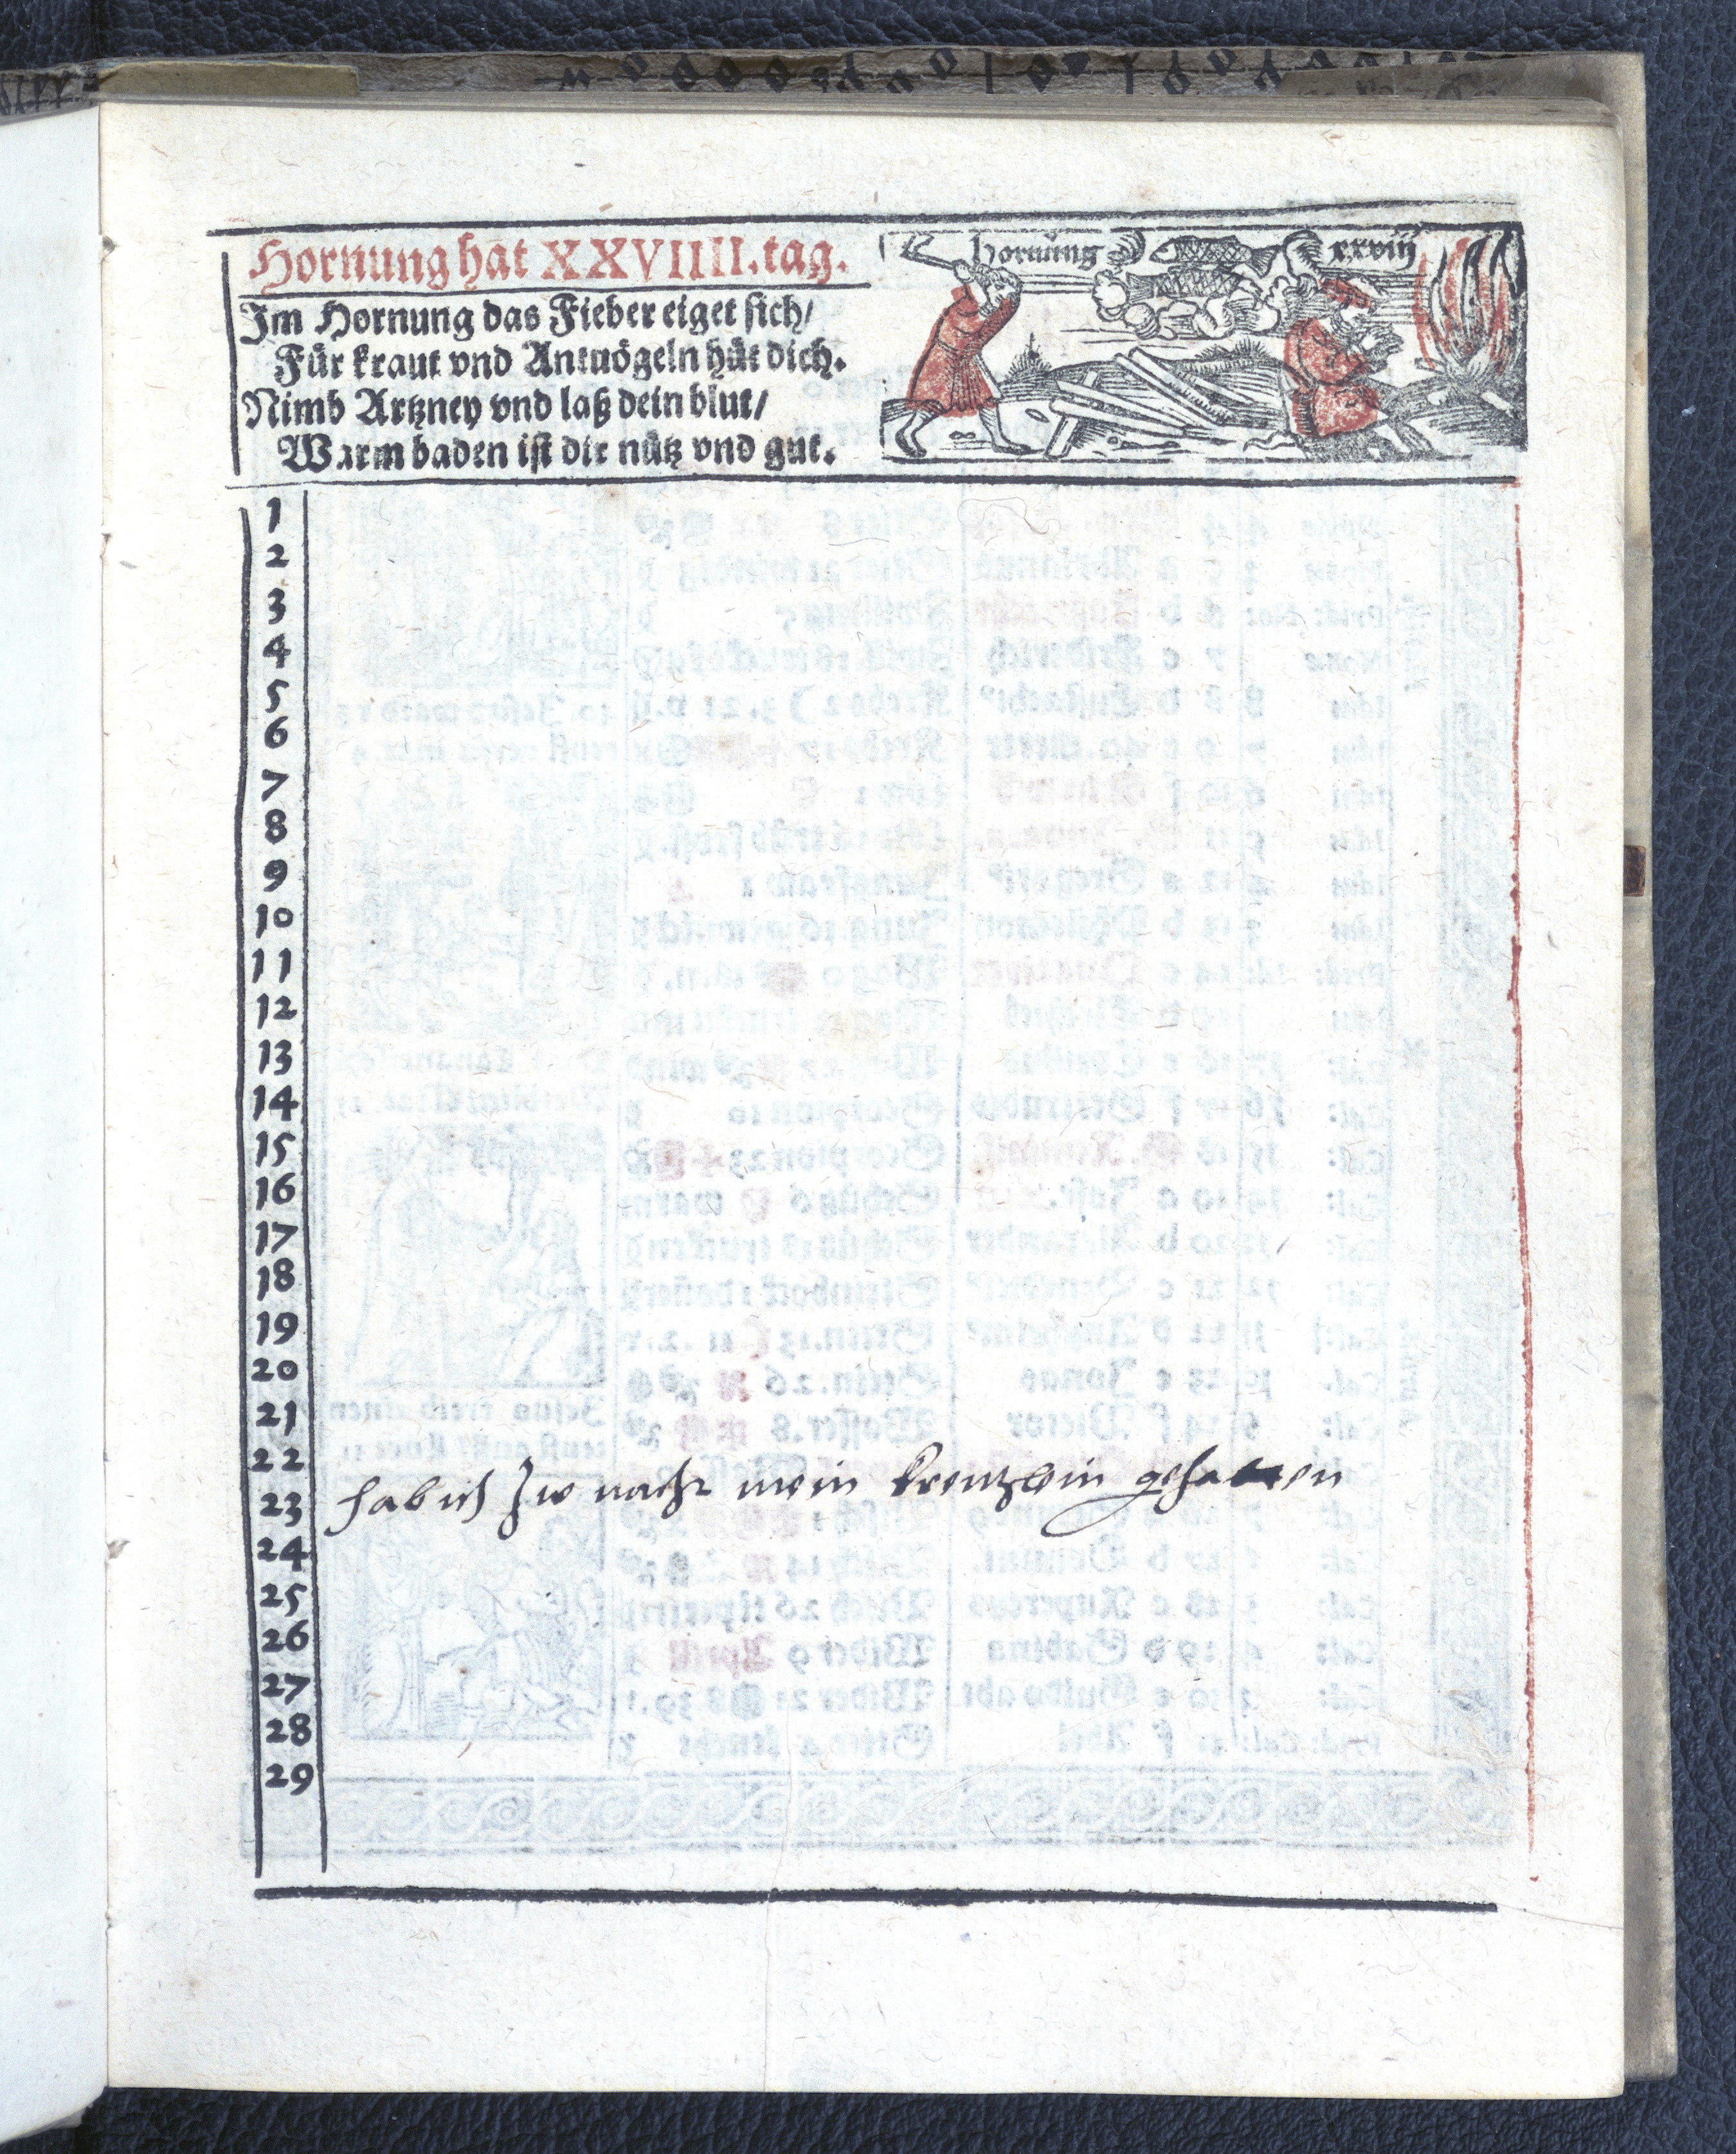 Hornung hat XXVIIII. tag.
Im Hornung das Fieber eiget sich/
Für kraut vnd Antuögeln hüt dich.
Nimb Artzney vnd laß dein blut/
Warm baden ist dir nütz vnd gut.
Hornung xxviij
1
2
3
4
5
6
7
8
9
10
11
12
13
14
15
16
17
18
19
20
21
22
23 hab ich zw nacht mein krentzlein gehalten
24
25
26
27
28
29